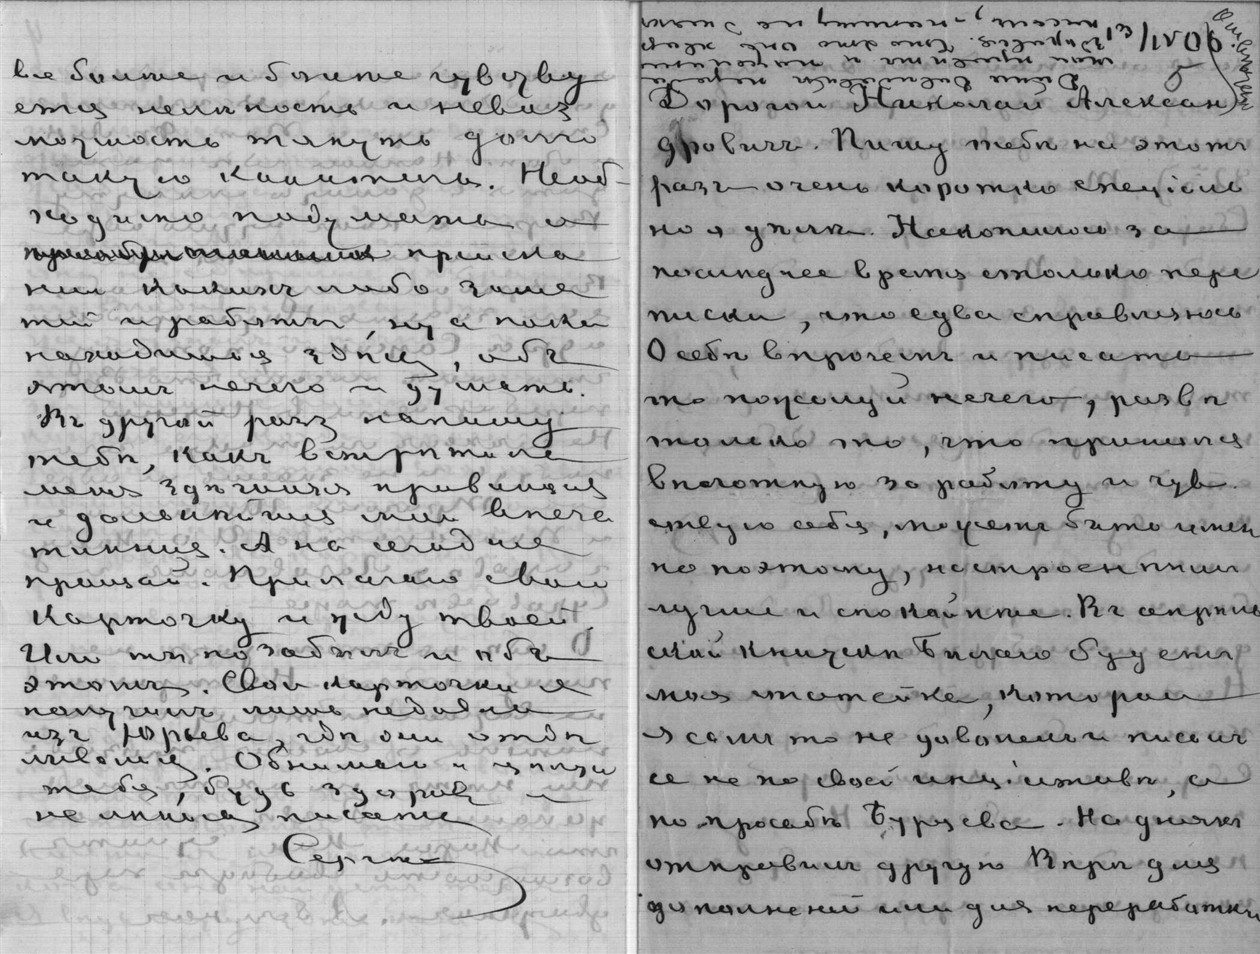 все больше и больше чувству
ется нелѣпость и невоз
можность тянуть долго
такую канитель. Необ-
ходимо подумать о
пріиска
ніи какихъ либо заня
тій и работы, ну а пока
находишься здѣсь, объ
этомъ нечего и думать.
Въ другой разъ напишу
тебѣ, какъ встрѣтила
меня здѣшняя провинція
и дальнѣйшія мои впеча
тлѣнія. А на сегодня
прощай. Прилагаю свою
карточку и жду твоей.
Или ты позабылъ и объ
этомъ. Свои карточки я
получилъ лишь недавно
изъ Юрьева, гдѣ они отпе
Обнимаю и цѣлую
тебя, будь здоровъ и
не лѣнись писать
Сергѣй
13/IV 06.
Дорогой Николай Алексан
дровичъ. Пишу тебѣ на этотъ
разъ очень коротко спеціаль
но о дѣлѣ. Накопилось за
послѣднее время столько пере
писки, что едва справляюсь
О себѣ впрочемъ и писать
то пожалуй нечего, развѣ
только то, что принялся
вплотную за работу и чув
ствую себя, можетъ быть имен
но поэтому, настроеніемъ
лучше и спокойнѣе. Въ апрѣль
ской книжкѣ Былого будетъ
моя статейка, которой
я самъ то не доволенъ и писалъ
ее не по своей иниціативѣ, а
по просьбѣ Бурцева. На дняхъ
отправилъ другую В. при для
дополненій или для переработки